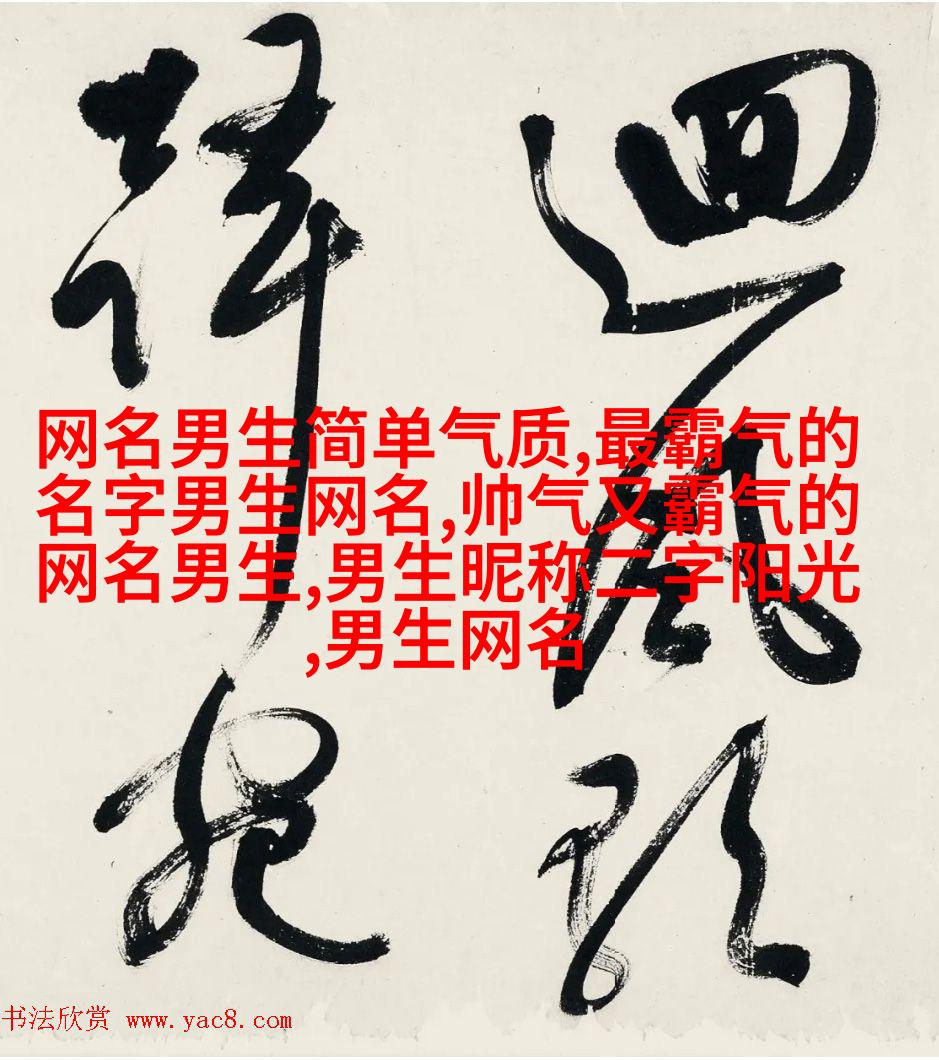 迴風
网名男生简单气质,最霸气的
名字男生网名,帅气又霸气的
网名男生,男生昵称二字阳光
,男生网名
书法欣赏 www.yac8.com